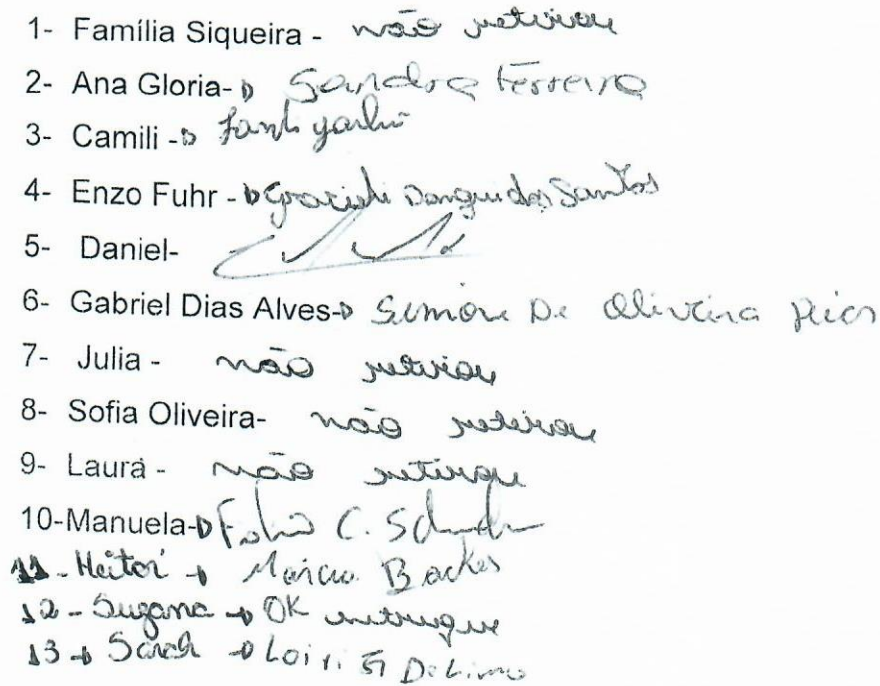 1- Família Siqueira - não retirou
2- Ana Gloria-> Sandra Ferreira
3- Camili ->
4- Enzo Fuhr -> dos Santos
5- Daniel-
6- Gabriel Dias Alves-> Simone De Oliveira
7- Julia - não retirou
8- Sofia Oliveira- não retirou
9- Laura - não retirou
10-Manuela-> C.
11- Heitor -> Marcia Backes
12- Suzana -> OK entregue
13 -> Sarah -> De Lima